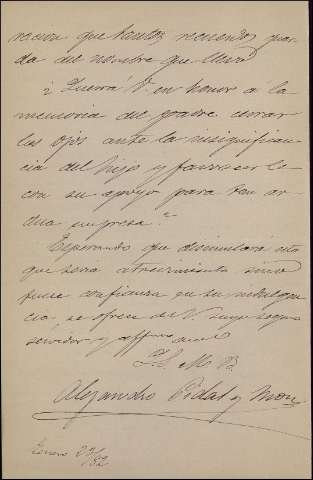 racion que tantos recuerdos guar-
da del nombre que llevo
¿Querrá V. en honor á la
memoria del padre cerrar
los ojos ante la insignifican-
cia del hijo y favorecerle
con su apoyo para tan ar-
dua empresa?
Esperando que disimulará esto
que seria atrevimiento sino
fuese confianza en su indulgen-
cia, se ofrece de V. muy seguro
servidor y affmo
Q. B. S. M.
Alejandro Pidal y Mon
Enero 29/82